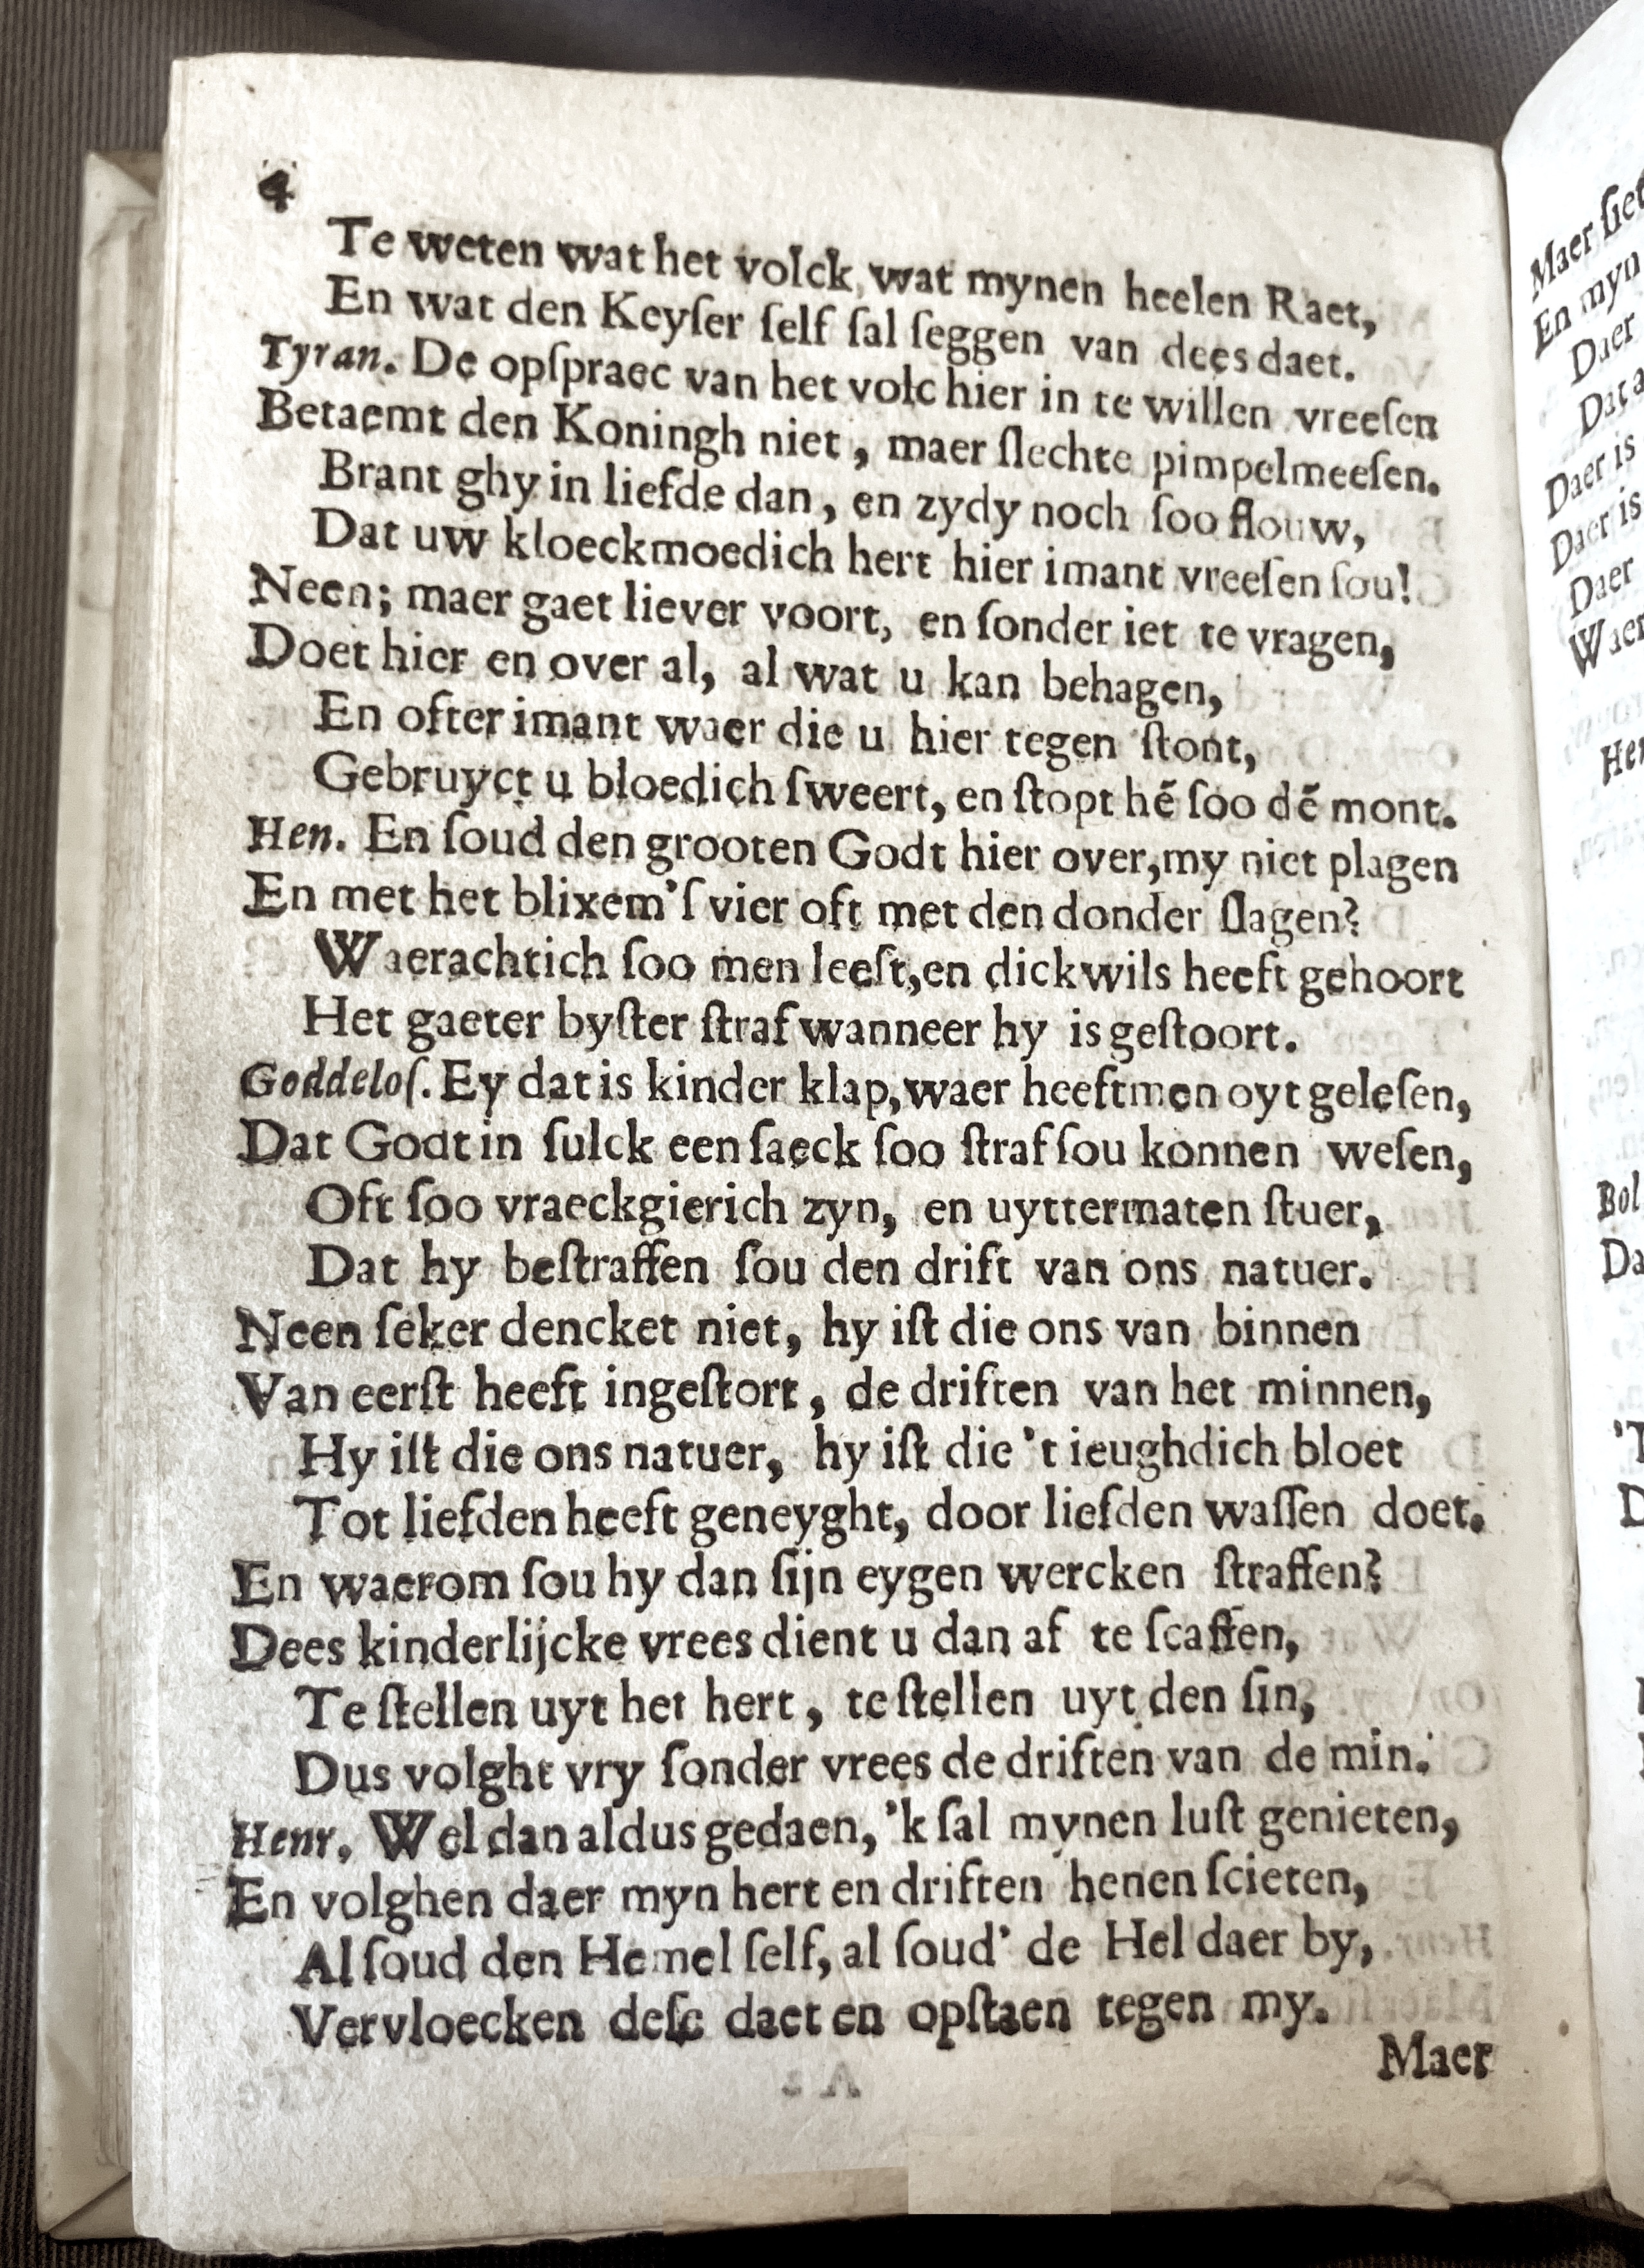 4
Te weten wat het volck, wat mynen heelen Raet,
En wat den Keyſer ſelf ſal ſeggen van dees daet.
Tyran. De opſpraec van het volc hier in te willen vreeſen
Betaemt den Koningh niet, maer ſlechte pimpelmeeſen.
Brant ghy in liefde dan, en zydy noch ſoo flouw,
Dat uw kloeckmoedich hert hier imant vreeſen ſou!
Neen; maer gaet liever voort, en ſonder iet te vragen,
Doet hier en over al, al wat u kan behagen,
En ofter imant waer die u hier tegen ſtont,
Gebruyct u bloedich ſweert, en ſtopt hẽ ſoo dẽ mont.
Hen. En ſoud den grooten Godt hier over, my niet plagen
En met het blixem'ſ vier oft met den donder ſlagen?
Waerachtich ſoo men leeſt, en dickwils heeft gehoort
Het gaeter byſter ſtraf wanneer hy is geſtoort.
Goddeloſ. Ey dat is kinder klap, waer heeftmen oyt geleſen,
Dat Godt in ſulck een ſaeck ſoo ſtraf ſou konnen weſen,
Oft ſoo vraeckgierich zyn, en uyttermaten ſtuer,
Dat hy beſtraffen ſou den drift van ons natuer.
Neen ſeker dencket niet, hy iſt die ons van binnen
Van eerſt heeft ingeſtort, de driften van het minnen,
Hy iſt die ons natuer, hy iſt die 't ieughdich bloet
Tot liefden heeft geneyght, door liefden waſſen doet.
En waerom ſou hy dan ſijn eygen wercken ſtraffen?
Dees kinderlijcke vrees dient u dan af te ſcaffen,
Te ſtellen uyt het hert, te ſtellen uyt den ſin,
Dus volght vry ſonder vrees de driften van de min.
Henr. Wel dan aldus gedaen, 'k ſal mynen luſt genieten,
En volghen daer myn hert en driften henen ſcieten,
Al ſoud den Hemel ſelf, al ſoud' de Hel daer by,
Vervloecken deſe daet en opſtaen tegen my.
Maer
Maer
En myn
Daer
Daer is
Daer is
Daer
Bol